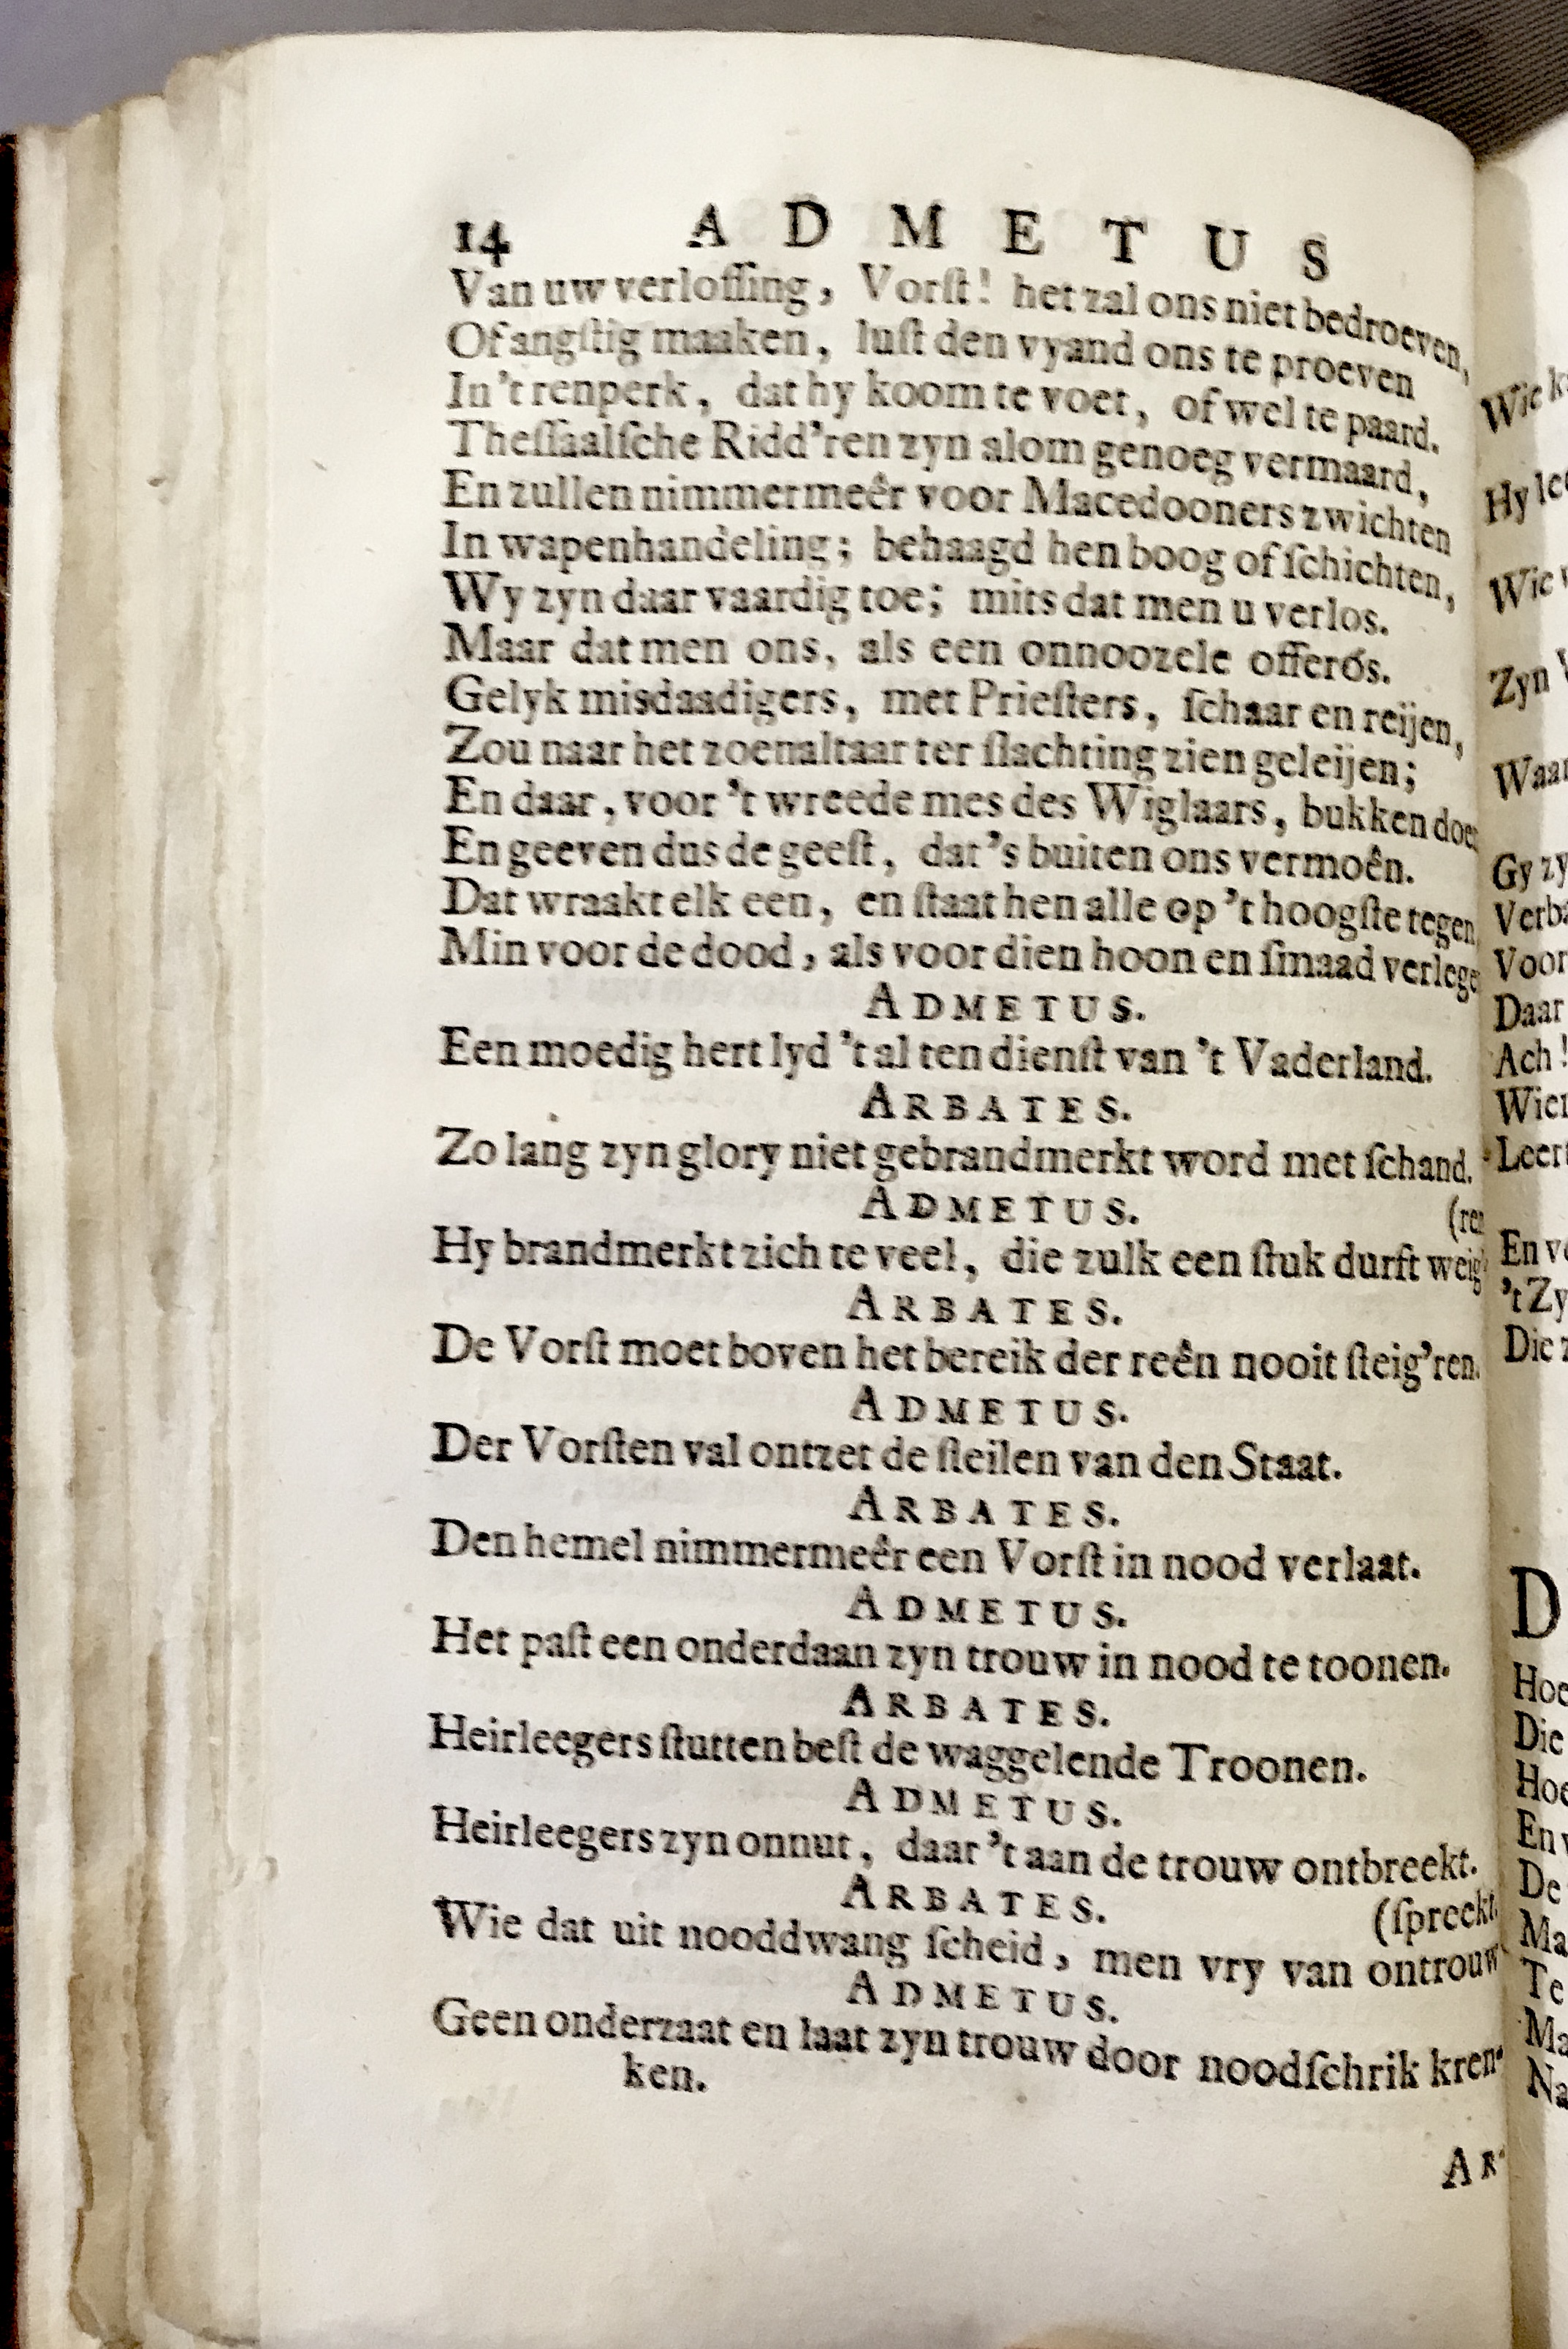 14 ADMETUS
Van uw verloſſing, Vorſt! het zal ons niet bedroeven,
Of angſtig maaken, luſt den vyand ons te proeven
In 't renperk, dat hy koom te voet, of wel te paard.
Theſſaalſche Ridd'ren zyn alom genoeg vermaard,
En zullen nimmermeêr voor Macedooners zwichten
In wapenhandeling; behaagd hen boog of ſchichten,
Wy zyn daar vaardig toe; mits dat men u verlos.
Maar dat men ons, als een onnoozele offerós.
Gelyk misdaadigers, met Prieſters, ſchaar en reijen,
Zou naar het zoenaltaar ter ſlachting zien geleijen;
En daar, voor 't wreede mes des Wiglaars, bukken doen
En geeven dus de geeſt, dat 's buiten ons vermoên.
Dat wraakt elk een, en ſtaat hen alle op 't hoogſte tegen
Min voor de dood, als voor dien hoon en ſmaad verlege
ADMETUS.
Een moedig hert lyd 't al ten dienſt van 't Vaderland.
ARBATES.
Zo lang zyn glory niet gebrandmerkt word met ſchand.
ADMETUS. (ren
Hy brandmerkt zich te veel, die zulk een ſtuk durft weig'
ARBATES.
De Vorſt moet boven het bereik der reên nooit ſteig'ren.
ADMETUS.
Der Vorſten val ontzet de ſteilen van den Staat.
ARBATES.
Den hemel nimmermeêr een Vorſt in nood verlaat.
ADMETUS.
Het paſt een onderdaan zyn trouw in nood te toonen.
ARBATES.
Heirleegers ſtutten beſt de waggelende Troonen.
ADMETUS.
Heirleegers zyn onnut, daar 't aan de trouw ontbreekt.
ARBATES. (ſpreekt.
Wie dat uit nooddwang ſcheid, men vry van ontrouw
ADMETUS.
Geen onderzaat en laat zyn trouw door noodſchrik kren-
ken.
AR-
Hy
Zyn
Gy zy
Voor
Daar
Ach!
En ve
't Zy
Die z
D
Hoe
Die
Hoe
En v
De
Ma
Te
Ma
Na